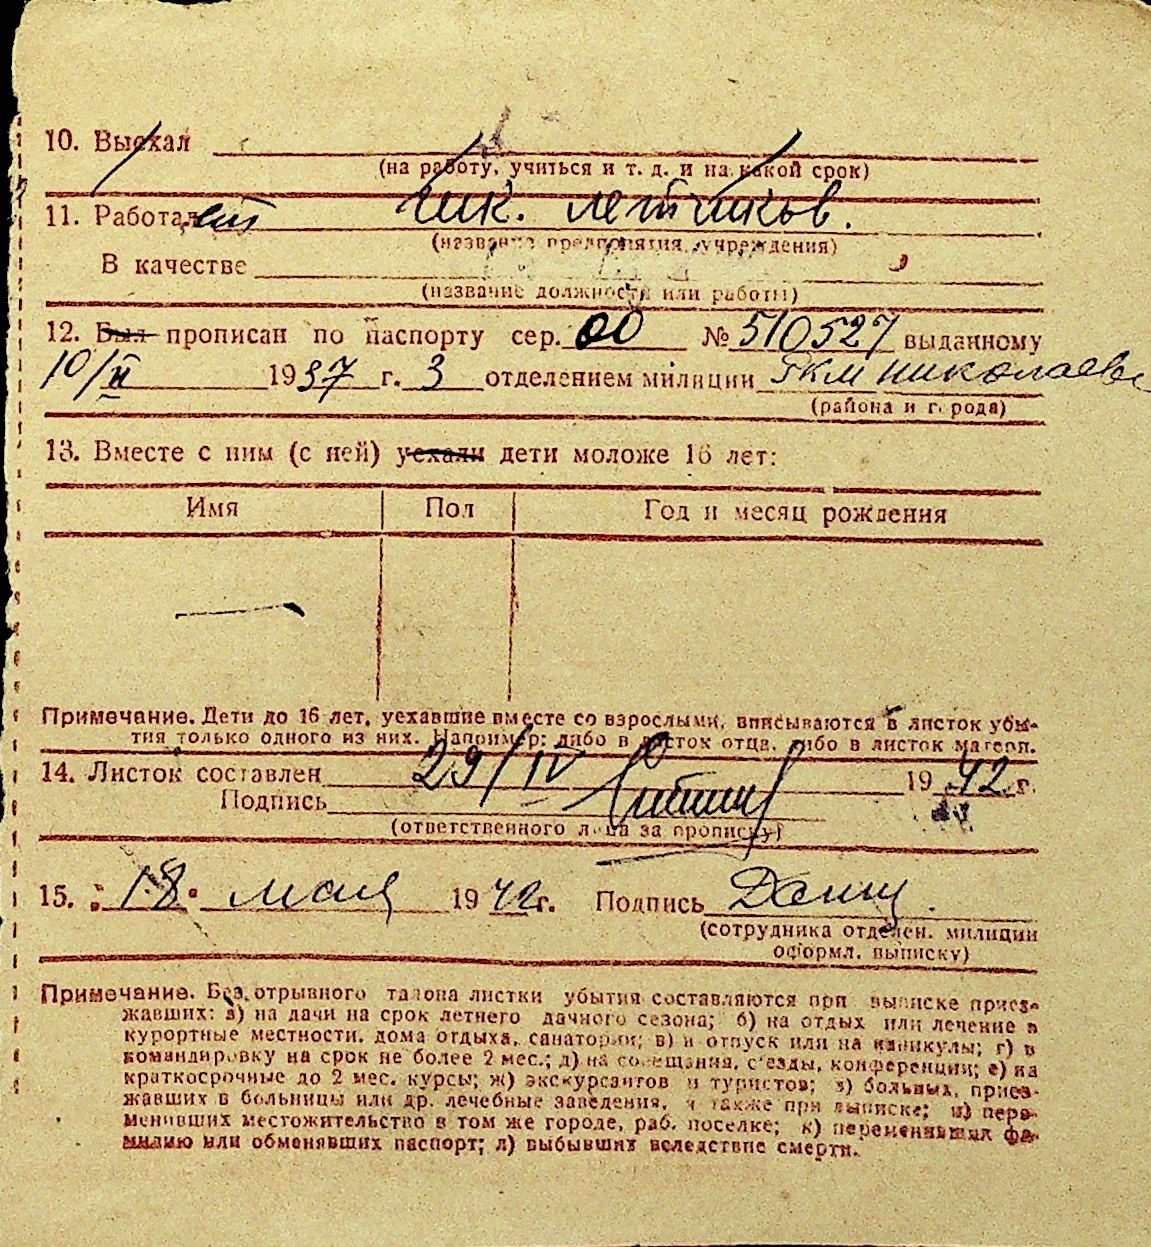 10. Выехал
(на работу, учиться и т. д. и на какой срок)
11. Работает шк. летчиков.
(название предприятия, учреждения)
В качестве
(название должности или работы)
12. Был прописан по паспорту сер. 00 № 510527 выданному
10/II 1937 г. 3 отделением милиции ГКМ Николаев
(района и города)
13. Вместе с ним (с ней) уехали дети моложе 16 лет:
Имя Пол Год и месяц рождения
—
Примечание. Дети до 16 лет, уехавшие вместе со взрослыми, вписываются в листок убы-
тия только одного из них. Например: либо в листок отца, либо в листок матери.
14. Листок составлен 29/IV 1942 г.
Подпись
(ответственного лица за прописку)
15. "18" мая 1942 г. Подпись
(сотрудника отделен. милиции
оформл. выписку)
Примечание. Без отрывного талона листки убытия составляются при выписке приез-
жавших: а) на дачи на срок летнего дачного сезона; б) на отдых или лечение в
курортные местности, дома отдыха, санатории; в) в отпуск или на каникулы; г) в
командировку на срок не более 2 мес.; д) на совещания, съезды, конференции; е) на
краткосрочные до 2 мес. курсы; ж) экскурсантов и туристов; з) больных, приез-
жавших в больницы или др. лечебные заведения, а также при выписке; и) пере-
менивших местожительство в том же городе, раб. поселке; к) переменивших фа-
милию или обменявших паспорт; л) выбывших вследствие смерти.